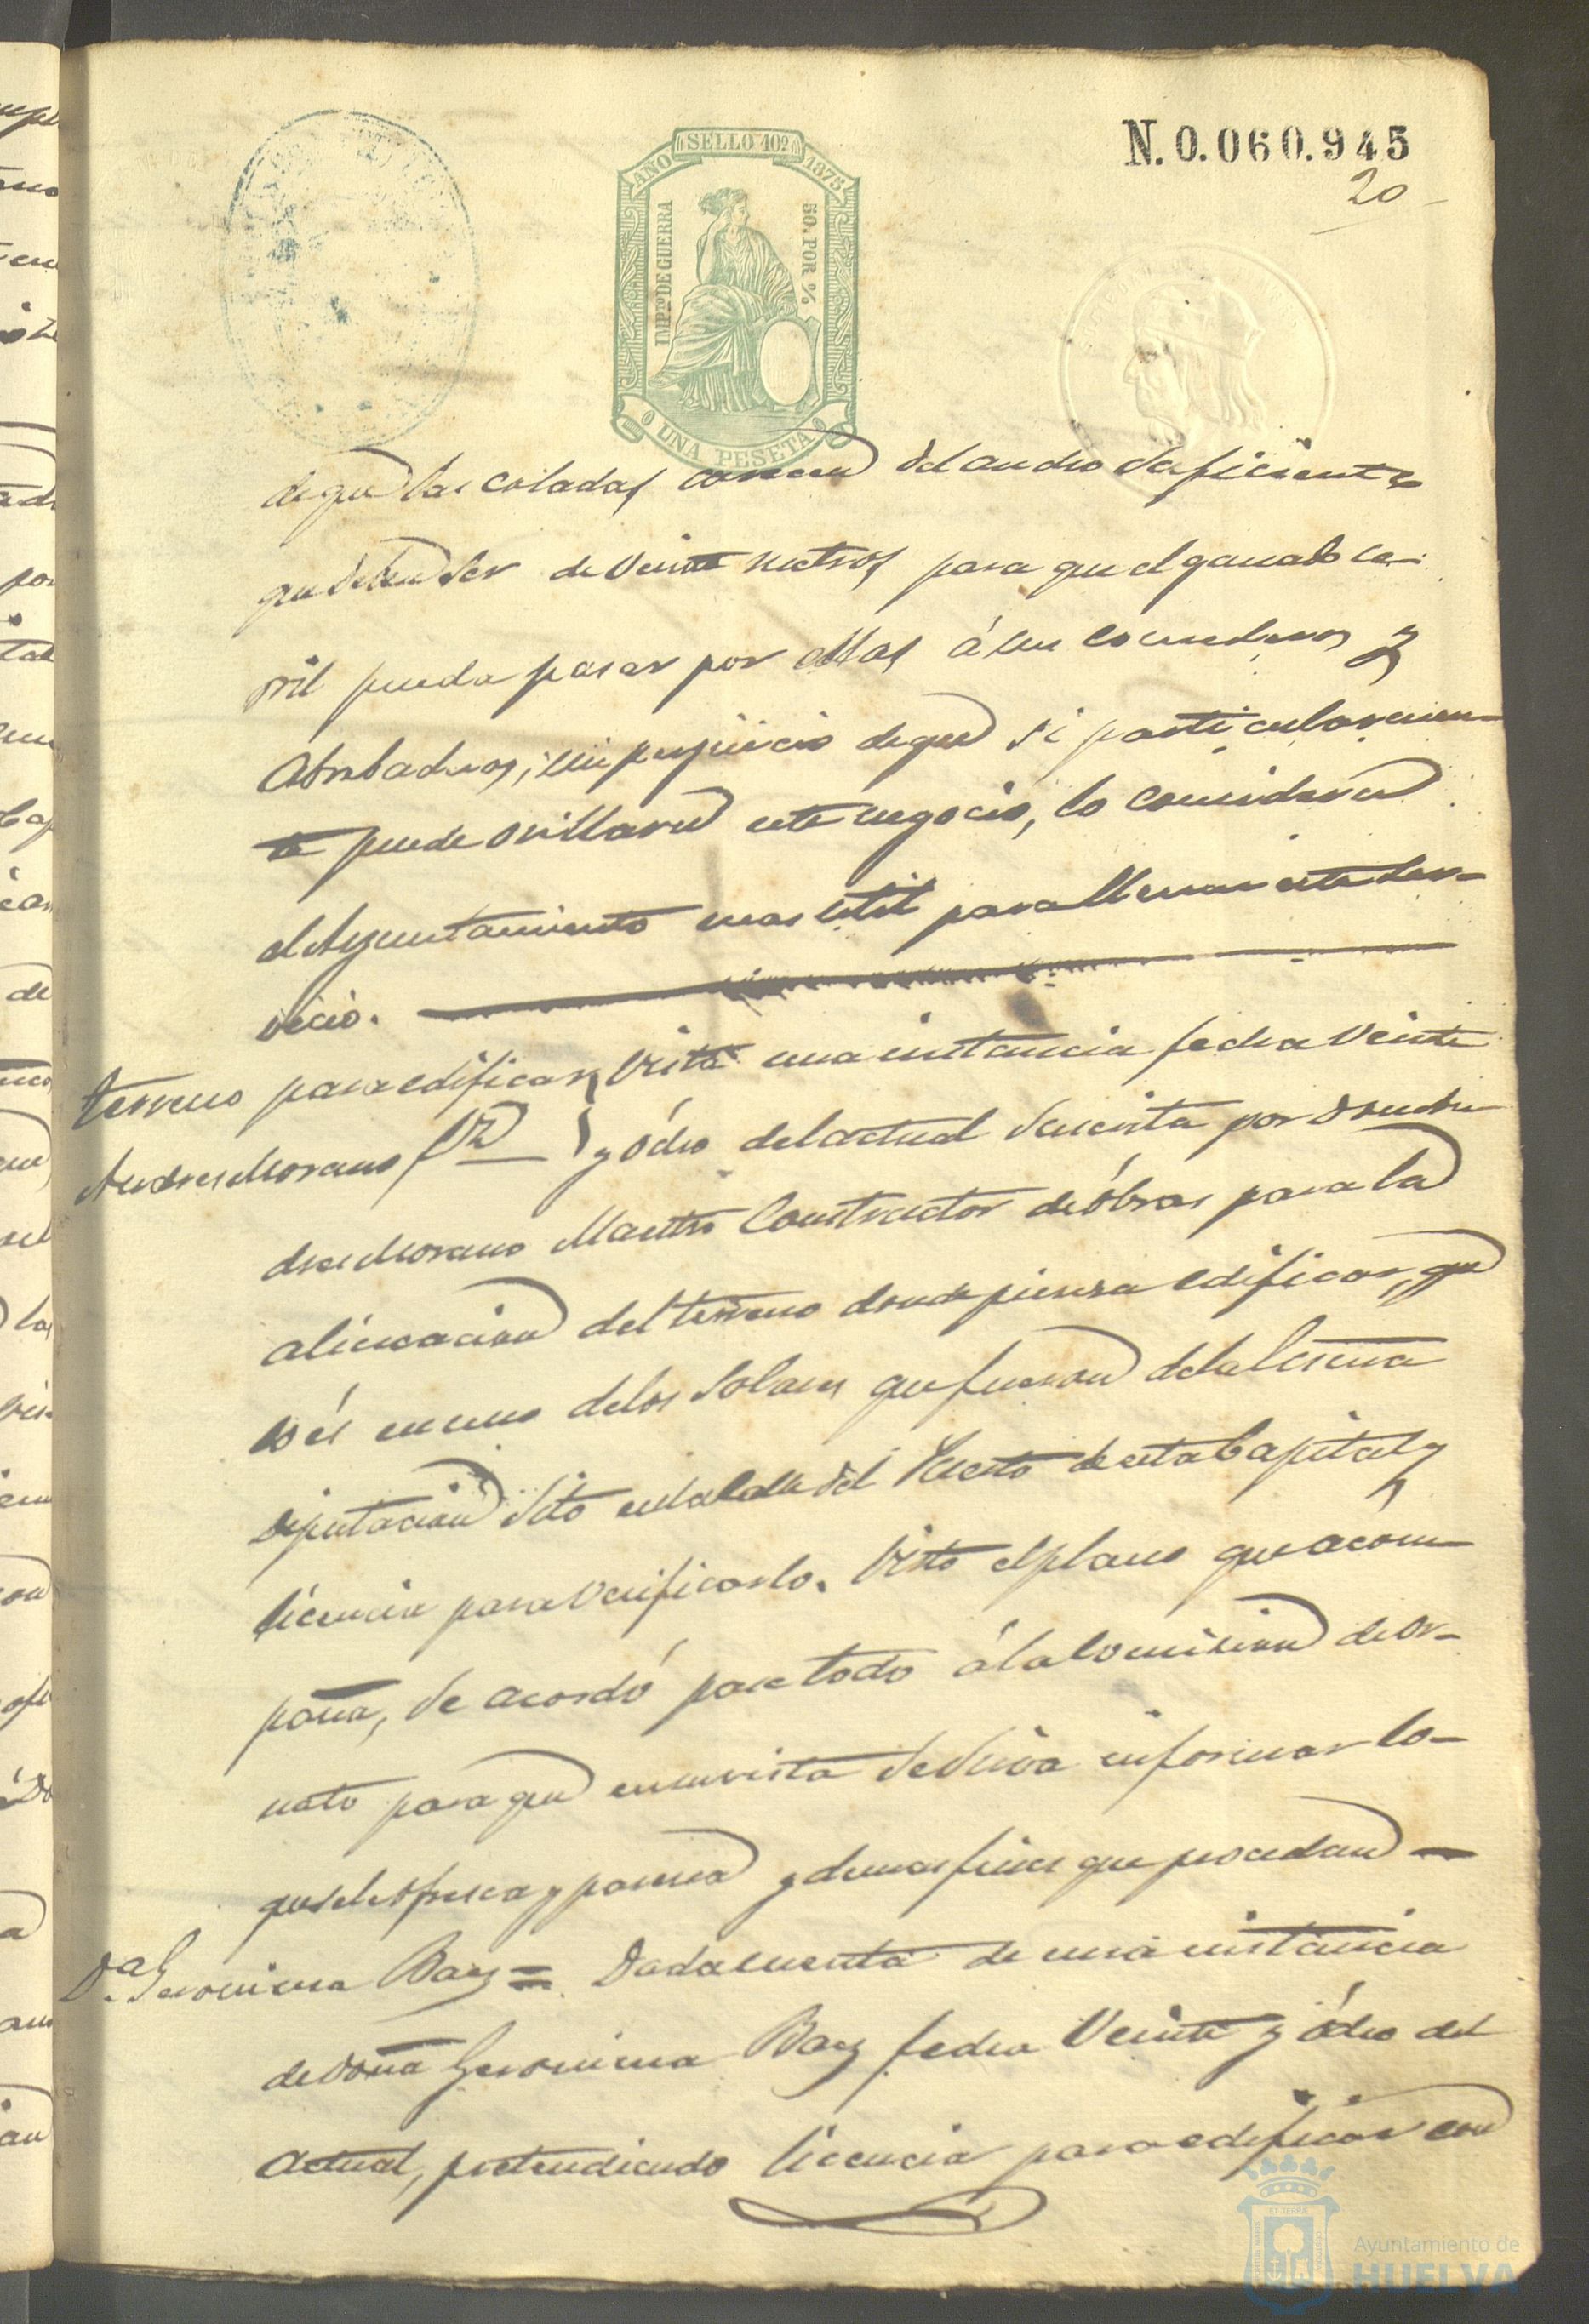 N.0.060.945
20
AÑO SELLO 10º 1875
IMPto DE GUERRA
50. POR %
UNA PESETA
de que las coladas carecen del ancho suficiente
que deben ser de veinte metros para que el ganado ce-
rril pueda pasar por ellas á sus comederos y
Abrebaderos, sin perjuicio de que si particularmen-
te puede orillarse este negocio, lo considera
el Ayuntamiento mas útil para llenar este ser-
vicio.
terreno para edificar Vista una instancia fecha Veinte
Andres Morano y ócho del actual suscrita por Don An-
dres Morano Maestro Constructor de óbras para la
alineacion del terreno donde piensa edificar, que
es en uno de los Solares que fueron de la Escma
Diputacion Sito en la calle del Puerto de esta Capital y
licencia para verificarlo. Visto el plano que acom-
paña, se acordó pase todo á la Comision de Or-
nato para que en su vista se sirva informar lo
que se le ofresca y paresca y demas fines que procedan
Da. Geronima Baez = Dada cuenta de una instancia
de Doña Geronima Baez fecha Veinte y ócho del
Actual, pretendiendo licencia para edificar con
Ayuntamiento de
HUELVA